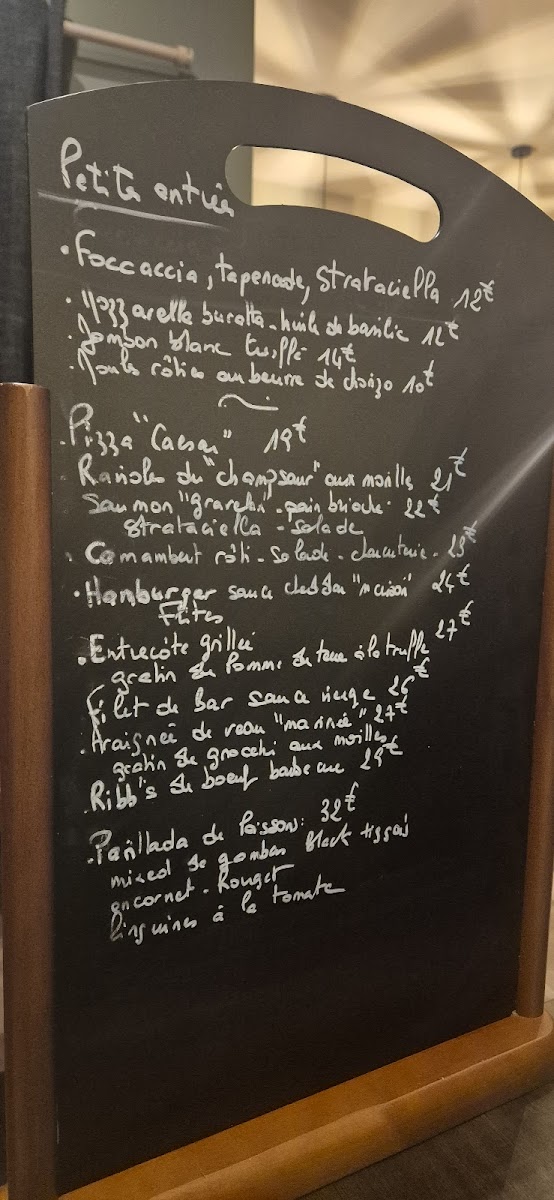 Petite entrée
• Foccaccia, tapenade, Strataciella 12€
• Mozzarella buratta - huile de basilic 12€
• Jambon blanc truffé 14€
• Moules rôties au beurre de chorizo 10€
• Pizza "Caesar" 19€
Ravioles du "champsaur" aux morilles 21€
Saumon "gravelax" - pain brioché - 22€
Strataciella - Salade
• Camembert rôti - Salade - charcuterie -
• Hamburger sauce cheddar "maison" 24€
Frites
• Entrecôte grillée
gratin de Pomme de terre à la truffe 27€
Filet de Bar sauce vierge 26€
• Araignée de veau "marinée" 27€
gratin de gnocchi aux morilles
• Ribb's de boeuf barbecue
• Parillada de Poissons: 32€
mixed de gambas Black tiger
encornet - Rouget
linguines à la tomate